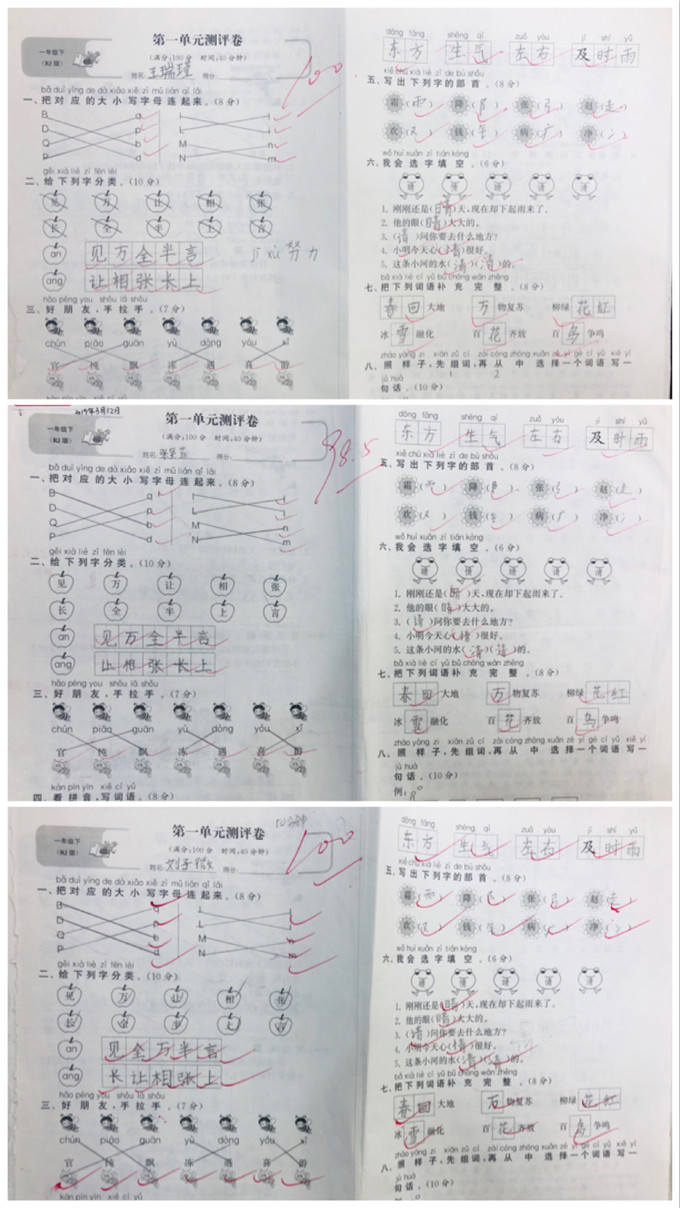 一年级下
(RJ版)
第一单元测评卷
(满分:100分 时间:40分钟)
姓名 王瑞瑾 得分
100
bǎ duì yìng de dà xiǎo xiě zì mǔ lián qǐ lái
一、把对应的大小写字母连起来。(8分)
B q I l
D p L i
Q b M n
P d N m
gěi xià liè zì fēn lèi
二、给下列字分类。(10分)
见 万 让 相 张
长 全 半 上 言
an 见万全半言
ang 让相张长上
jì xù 努力
hǎo péng you shǒu lā shǒu
三、好朋友,手拉手。(7分)
chūn piāo guān yù dòng yóu xǐ
官 纯 飘 冻 遇 喜 游
dōng fāng shēng qì zuǒ yòu jí shí yǔ
东方 生气 左右 及时雨
xiě chū xià liè zì de bù shǒu
五、写出下列字的部首。(8分)
霜(雨) 降(阝) 张(弓) 赵(走)
欢(又) 钱(钅) 病(疒) 净(冫)
wǒ huì xuǎn zì tián kòng
六、我会选字填空。(6分)
1. 刚刚还是(晴)天,现在却下起雨来了。
2. 他的眼(睛)大大的。
3. (请)问你要去什么地方?
4. 小明今天心(情)很好。
5. 这条小河的水(清)(清)的。
bǎ xià liè cí yǔ bǔ chōng wán zhěng
七、把下列词语补充完整。(8分)
春回大地 万物复苏 柳绿花红
冰雪融化 百花齐放 百鸟争鸣
zhào yàng zi xiān zǔ cí zài cóng zhōng xuǎn zé yí gè cí yǔ xiě yí
八、照样子,先组词,再从中选择一个词语写一
jù huà
句话。(10分)
2019年3月12日
一年级下
(RJ版)
第一单元测评卷
(满分:100分 时间:40分钟)
姓名 得分
98.5
bǎ duì yìng de dà xiǎo xiě zì mǔ lián qǐ lái
一、把对应的大小写字母连起来。(8分)
B q I l
D p L i
Q b M n
P d N m
gěi xià liè zì fēn lèi
二、给下列字分类。(10分)
见 万 让 相 张
长 全 半 上 言
an 见万全半言
ang 让相张长上
hǎo péng you shǒu lā shǒu
三、好朋友,手拉手。(7分)
chūn piāo guān yù dòng yóu xǐ
官 纯 飘 冻 遇 喜 游
kàn pīn yīn xiě cí yǔ
四、看拼音,写词语。(8分)
dōng fāng shēng qì zuǒ yòu jí shí yǔ
东方 生气 左右 及时雨
xiě chū xià liè zì de bù shǒu
五、写出下列字的部首。(8分)
霜(雨) 降(阝) 张(弓) 赵(走)
欢(又) 钱(钅) 病(疒) 净(冫)
wǒ huì xuǎn zì tián kòng
六、我会选字填空。(6分)
1. 刚刚还是(晴)天,现在却下起雨来了。
2. 他的眼(睛)大大的。
3. (请)问你要去什么地方?
4. 小明今天心(情)很好。
5. 这条小河的水(清)(清)的。
bǎ xià liè cí yǔ bǔ chōng wán zhěng
七、把下列词语补充完整。(8分)
春回大地 万物复苏 柳绿花红
冰雪融化 百花齐放 百鸟争鸣
zhào yàng zi xiān zǔ cí zài cóng zhōng xuǎn zé yí gè cí yǔ xiě yí
八、照样子,先组词,再从中选择一个词语写一
jù huà
句话。(10分)
例:
一年级下
(RJ版)
第一单元测评卷
(满分:100分 时间:40分钟)
姓名 得分
100
bǎ duì yìng de dà xiǎo xiě zì mǔ lián qǐ lái
一、把对应的大小写字母连起来。(8分)
B q I l
D p L i
Q b M n
P d N m
gěi xià liè zì fēn lèi
二、给下列字分类。(10分)
见 万 让 相 张
长 全 半 上 言
an 见全万半言
ang 长让相张上
hǎo péng you shǒu lā shǒu
三、好朋友,手拉手。(7分)
chūn piāo guān yù dòng yóu xǐ
官 纯 飘 冻 遇 喜 游
kàn pīn yīn xiě cí yǔ
dōng fāng shēng qì zuǒ yòu jí shí yǔ
东方 生气 左右 及时雨
xiě chū xià liè zì de bù shǒu
五、写出下列字的部首。(8分)
霜(雨) 降(阝) 张(弓) 赵(走)
欢(又) 钱(钅) 病(疒) 净(冫)
wǒ huì xuǎn zì tián kòng
六、我会选字填空。(6分)
1. 刚刚还是(晴)天,现在却下起雨来了。
2. 他的眼(睛)大大的。
3. (请)问你要去什么地方?
4. 小明今天心(情)很好。
5. 这条小河的水(清)(清)的。
bǎ xià liè cí yǔ bǔ chōng wán zhěng
七、把下列词语补充完整。(8分)
春回大地 万物复苏 柳绿花红
冰雪融化 百花齐放 百鸟争鸣
zhào yàng zi xiān zǔ cí zài cóng zhōng xuǎn zé yí gè cí yǔ xiě yí
八、照样子,先组词,再从中选择一个词语写一
jù huà
句话。(10分)